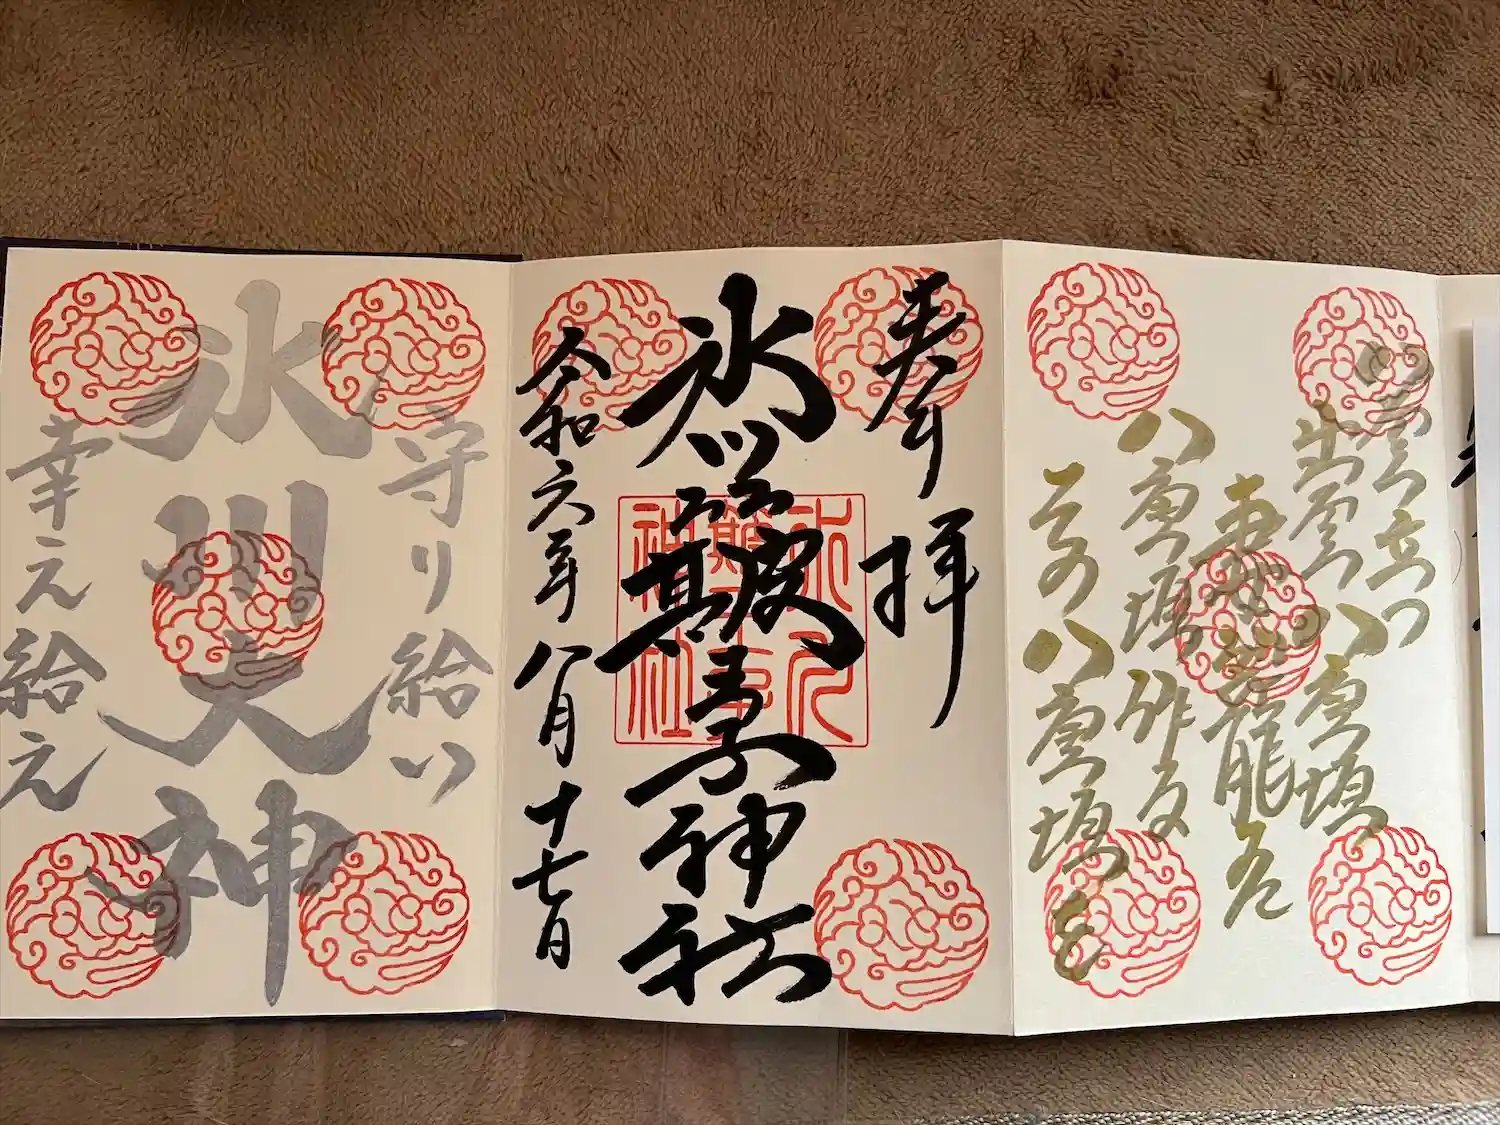 八雲立つ
出雲八重垣
八重垣作る
その八重垣を
奉拝
氷川簸王子神社
氷川
簸王子
神社
令和六年八月十七日
守り給い
氷川大神
幸え給え